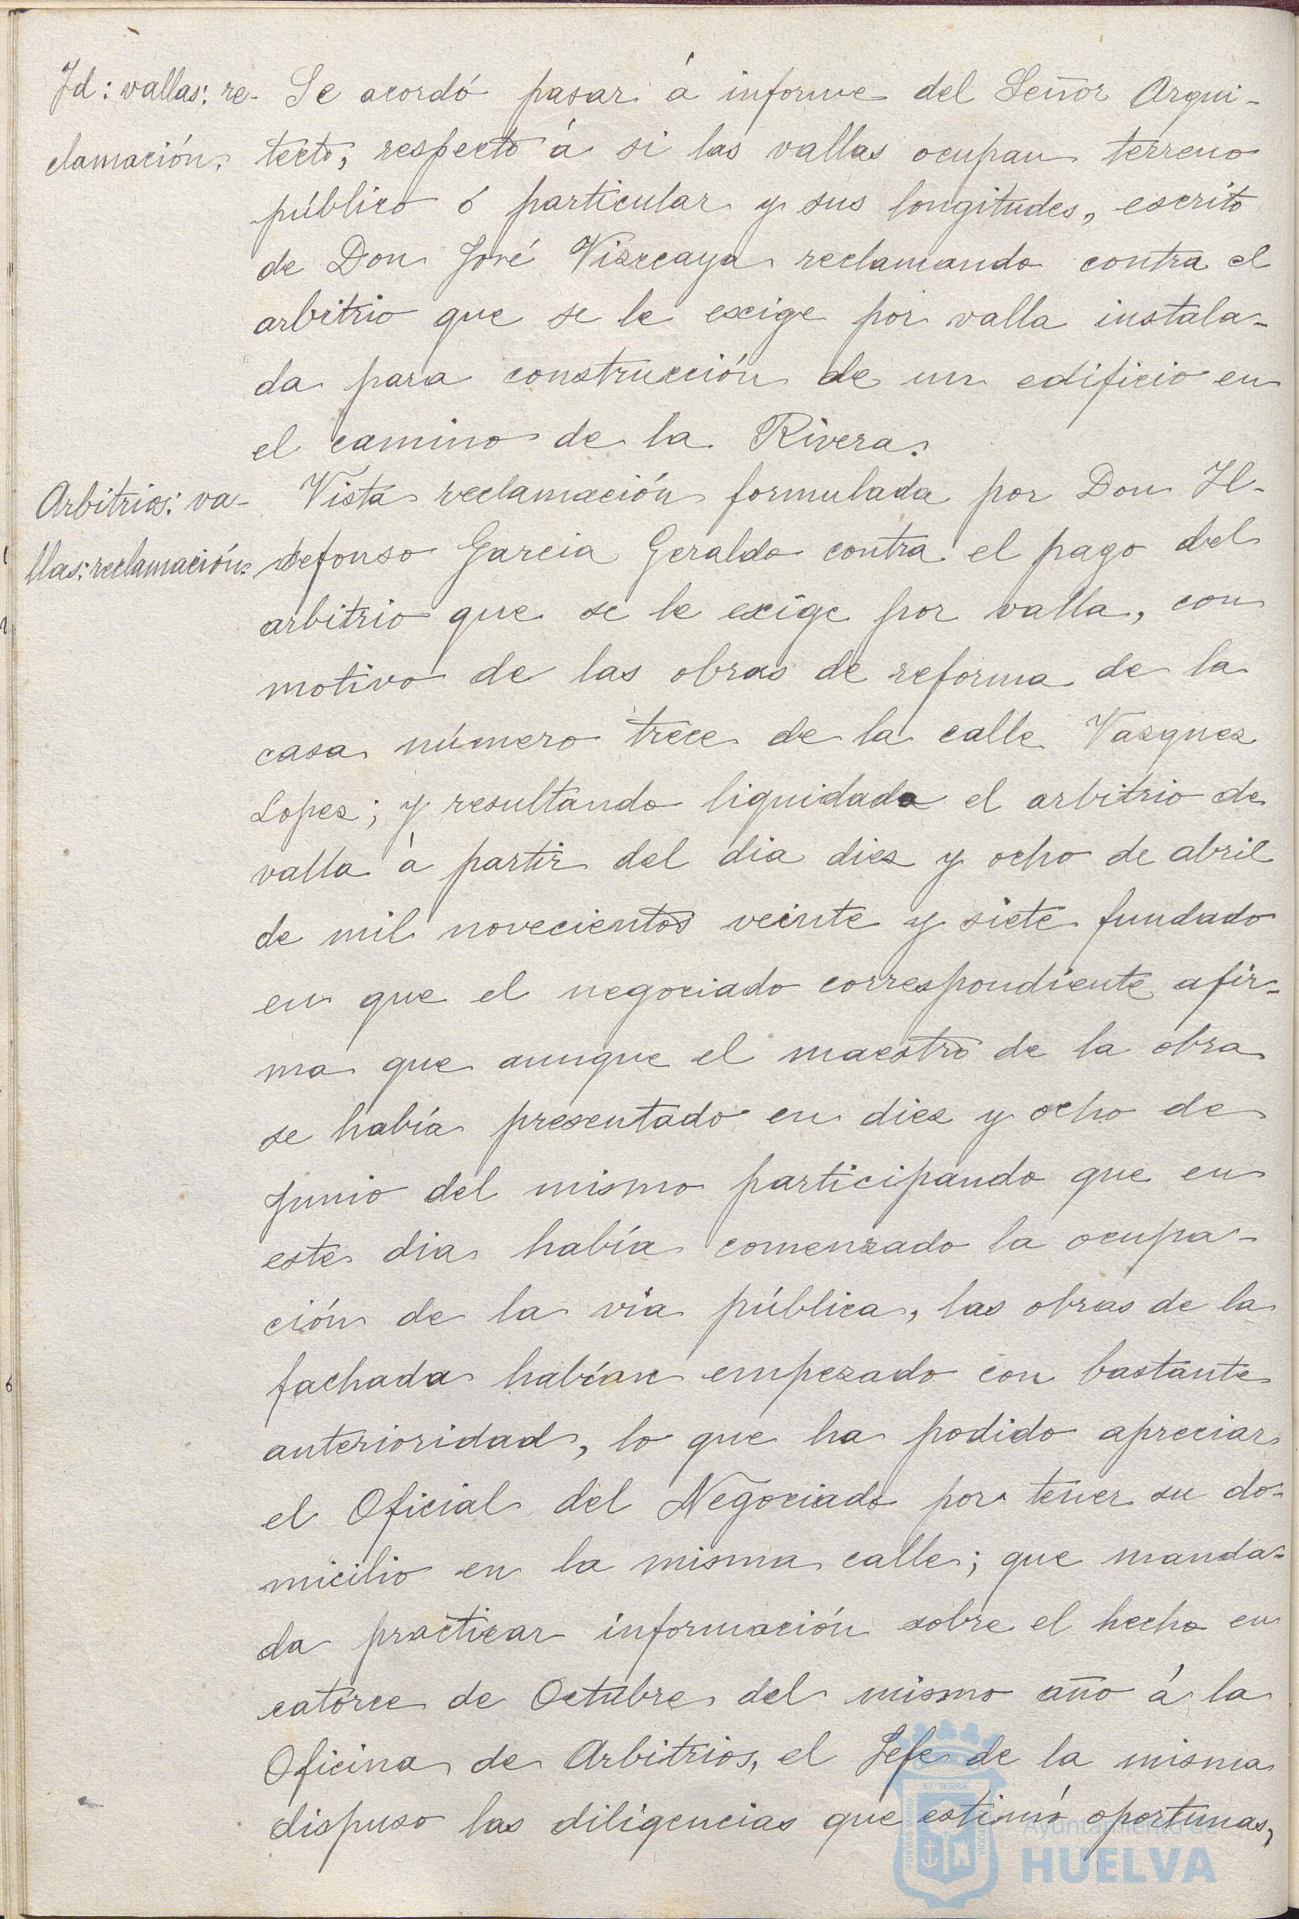 Id: vallas: re-
clamación.
Se acordó pasar á informe del Señor Arqui-
tecto, respecto á si las vallas ocupan terreno
público ó particular y sus longitudes, escrito
de Don José Vizccaya reclamando contra el
arbitrio que se le exige por valla instala-
da para construcción de un edificio en
el camino de la Rivera.
Arbitrios: va-
llas: reclamación.
Vista reclamación formulada por Don Il-
defonso Garcia Geraldo contra el pago del
arbitrio que se le exige por valla, con
motivo de las obras de reforma de la
casa número trece de la calle Vazquez
Lopez; y resultando liquidado el arbitrio de
valla á partir del dia diez y ocho de abril
de mil novecientos veinte y siete fundado
en que el negociado correspondiente afir-
ma que aunque el maestro de la obra
se había presentado en diez y ocho de
Junio del mismo participando que en
este dia había comenzado la ocupa-
ción de la via pública, las obras de la
fachada habían empezado con bastante
anterioridad, lo que ha podido apreciar
el Oficial del Negociado por tener su do-
micilio en la misma calle; que manda-
da practicar información sobre el hecho en
catorce de Octubre del mismo año á la
Oficina de Arbitrios, el Jefe de la misma
dispuso las diligencias que estimó oportunas,
Ayuntamiento de
HUELVA